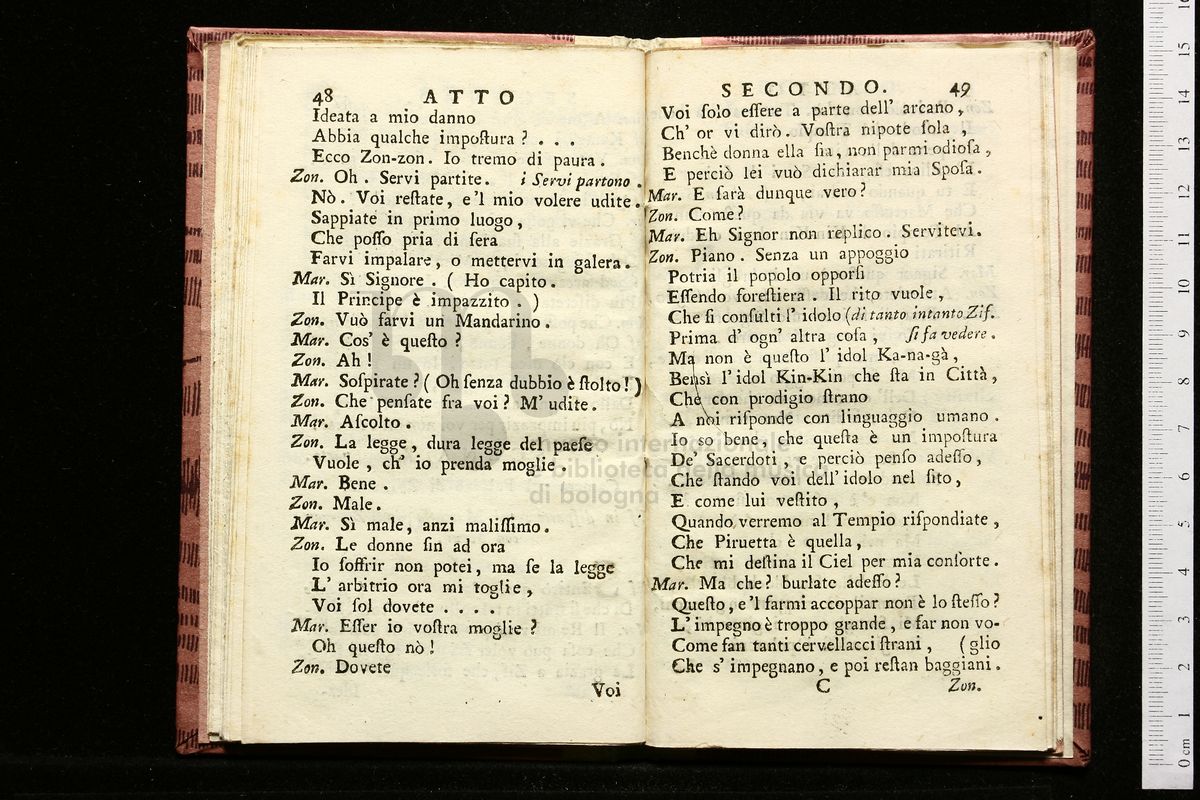 48 ATTO
Ideata a mio danno
Abbia qualche impoſtura ? . . .
Ecco Zon-zon. Io tremo di paura .
Zon. Oh . Servi partite. i Servi partono .
Nò . Voi reſtate, e 'l mio volere udite .
Sappiate in primo luogo ,
Che poſſo pria di ſera
Farvi impalare , o mettervi in galera .
Mar. Sì Signore . ( Ho capito .
Il Principe è impazzito . )
Zon. Vuò farvi un Mandarino .
Mar. Cos' è queſto ?
Zon. Ah !
Mar. Soſpirate ? ( Oh ſenza dubbio è ſtolto ! )
Zon. Che penſate fra voi ? M' udite .
Mar. Aſcolto .
Zon. La legge , dura legge del paeſe
Vuole , ch' io prenda moglie .
Mar. Bene .
Zon. Male .
Mar. Sì male, anzi maliſſimo .
Zon. Le donne ſin ad ora
Io ſoffrir non potei, ma ſe la legge
L' arbitrio ora mi toglie ,
Voi ſol dovete . . . .
Mar. Eſſer io voſtra moglie ?
Oh queſto nò !
Zon. Dovete
Voi
SECONDO. 49
Voi ſolo eſſere a parte dell' arcano ,
Ch' or vi dirò . Voſtra nipote ſola ,
Benchè donna ella ſia , non parmi odioſa ,
E perciò lei vuò dichiarar mia Spoſa .
Mar. E ſarà dunque vero ?
Zon. Come ?
Mar. Eh Signor non replico . Servitevi .
Zon. Piano . Senza un appoggio
Potria il popolo opporſi
Eſſendo foreſtiera . Il rito vuole ,
Che ſi conſulti l' idolo (di tanto intanto Zif.
Prima d' ogn' altra coſa , ſi fa vedere .
Ma non è queſto l' idol Ka-na-gà ,
Bensì l' idol Kin-Kin che ſta in Città ,
Che con prodigio ſtrano
A noi riſponde con linguaggio umano .
Io so bene , che queſta è un impoſtura
De' Sacerdoti , e perciò penſo adeſſo ,
Che ſtando voi dell' idolo nel ſito ,
E come lui veſtito ,
Quando verremo al Tempio riſpondiate ,
Che Piruetta è quella ,
Che mi deſtina il Ciel per mia conſorte .
Mar. Ma che ? burlate adeſſo ?
Queſto , e 'l farmi accoppar non è lo ſteſſo ?
L' impegno è troppo grande , e far non vo-
Come fan tanti cervellacci ſtrani , (glio
Che s' impegnano , e poi reſtan baggiani .
C Zon.
di bologna
0 cm 1 2 3 4 5 6 7 8 9 10 11 12 13 14 15 16